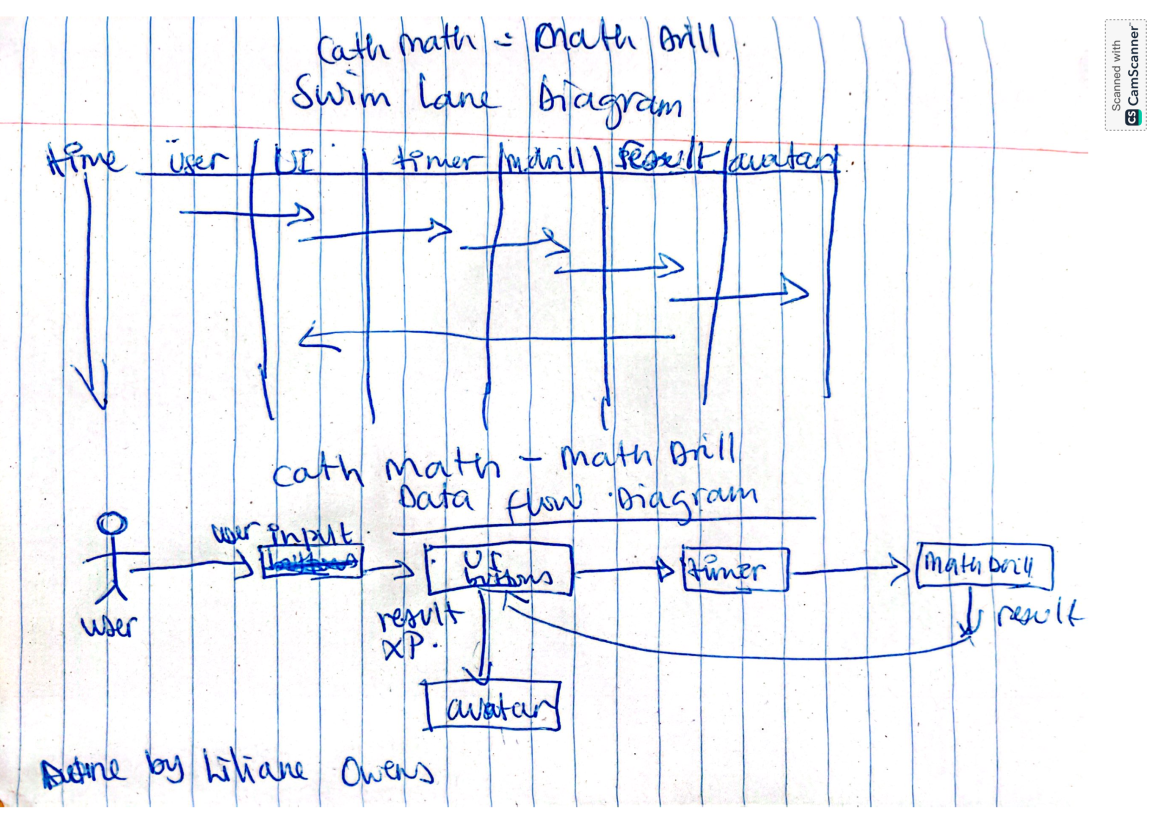 Cath math - Math Drill
Swim Lane Diagram
time user UI timer m.drill result avatar
Cath math - Math Drill
Data flow Diagram
user input
UI buttons
timer
Math Drill
result
user
result
XP.
avatar
by Liliane Owens
Scanned with
CS CamScanner